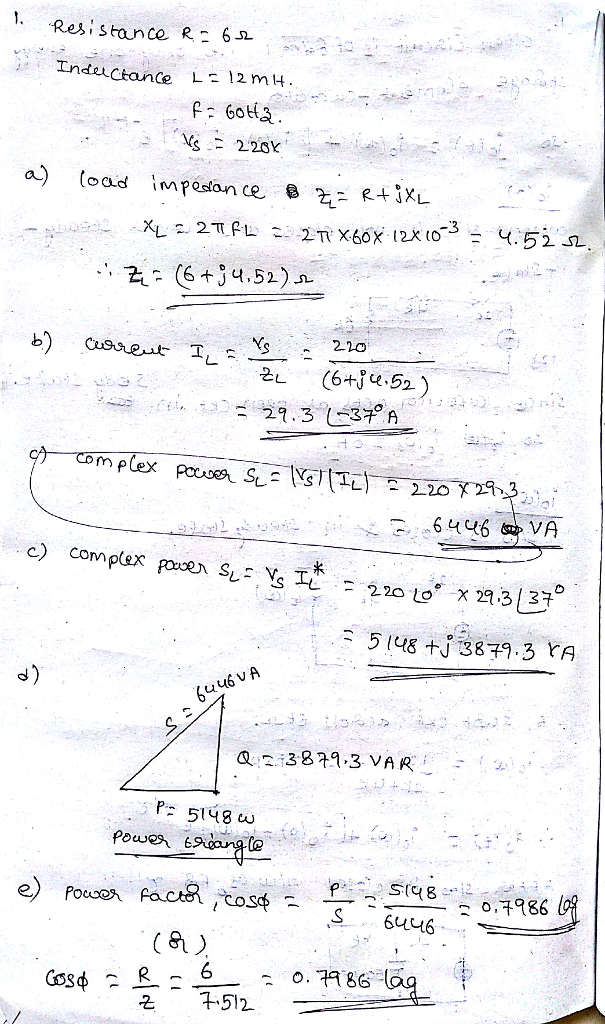 1. Resistance R = 6Ω
Inductance L = 12mH.
f = 60Hz.
Vs = 220V
a) load impedance Z_L = R+jX_L
X_L = 2πfL = 2π×60×12×10^-3 = 4.52 Ω.
∴ Z_L = (6+j4.52)Ω
b) current I_L = Vs/Z_L = 220/(6+j4.52)
= 29.3 ∠-37° A
c) complex power S_L = |Vs||I_L| = 220×29.3
= 6446 VA
c) complex power S_L = Vs I_L* = 220∠0° × 29.3∠37°
= 5148 +j 3879.3 VA
d)
S = 6446VA
Q = 3879.3 VAR
P = 5148 W
power triangle
e) power factor, cosφ = P/S = 5148/6446 = 0.7986 lag
(or)
cosφ = R/Z = 6/7.512 = 0.7986 lag